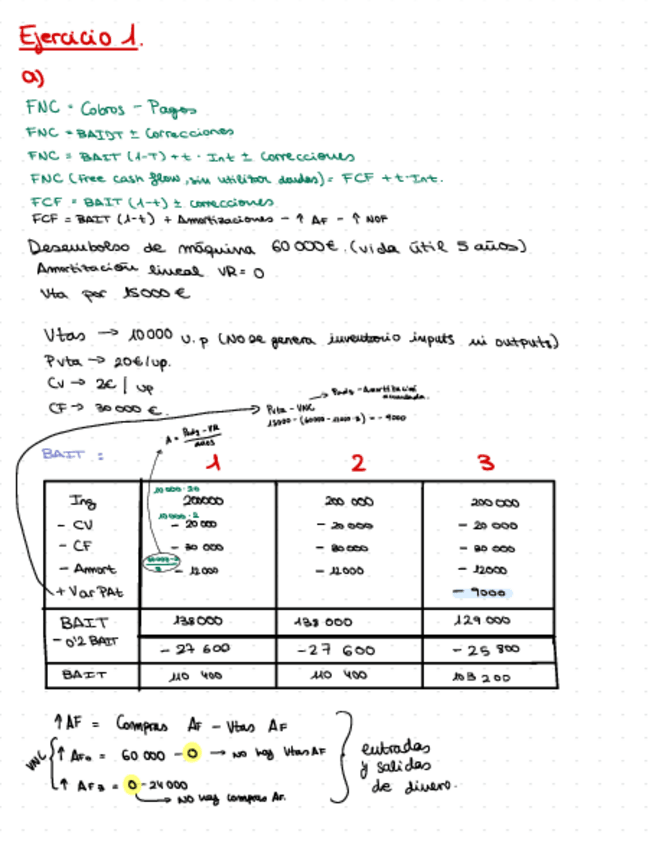 Ejercicio 1.
a)
FNC = Cobros - Pagos
FNC = BAIDT ± Correcciones
FNC = BAIT (1-T) + t · Int ± Correcciones
FNC (Free cash flow, sin utilizar deudas) = FCF + t·Int.
FCF = BAIT (1-t) ± correcciones
FCF = BAIT (1-t) + Amortizaciones - ↑ AF - ↑ NOF
Desembolso de máquina 60 000€. (vida útil 5 años)
Amortización lineal VR = 0
Vta por 15000 €
Vtas → 10000 u.p (NO se genera inventario inputs ni outputs)
Pvta → 20€/up.
Cv → 2€ | up
CF → 30 000 €.
→ Padq - Amortización acumulada.
Pvta - VNC
A = Padq - VR / años
BAIT :
1 2 3
10 000 · 20
Ing 200000 200 000 200 000
10 000 · 2
- CV - 20 000 - 20 000 - 20 000
- CF - 30 000 - 30 000 - 30 000
- Amort - 12000 - 12000 - 12000
+ Var PAt - 9000
BAIT 138000 138 000 129 000
- 0'2 BAIT - 27 600 - 27 600 - 25 800
BAIT 110 400 110 400 103 200
↑ AF = Compras AF - Vtas AF
VNC
↑ AF₀ = 60 000 - 0 → NO hay Vtas AF
↑ AF₃ = 0 - 24 000
→ NO hay compras AF.
entradas
y salidas
de dinero.